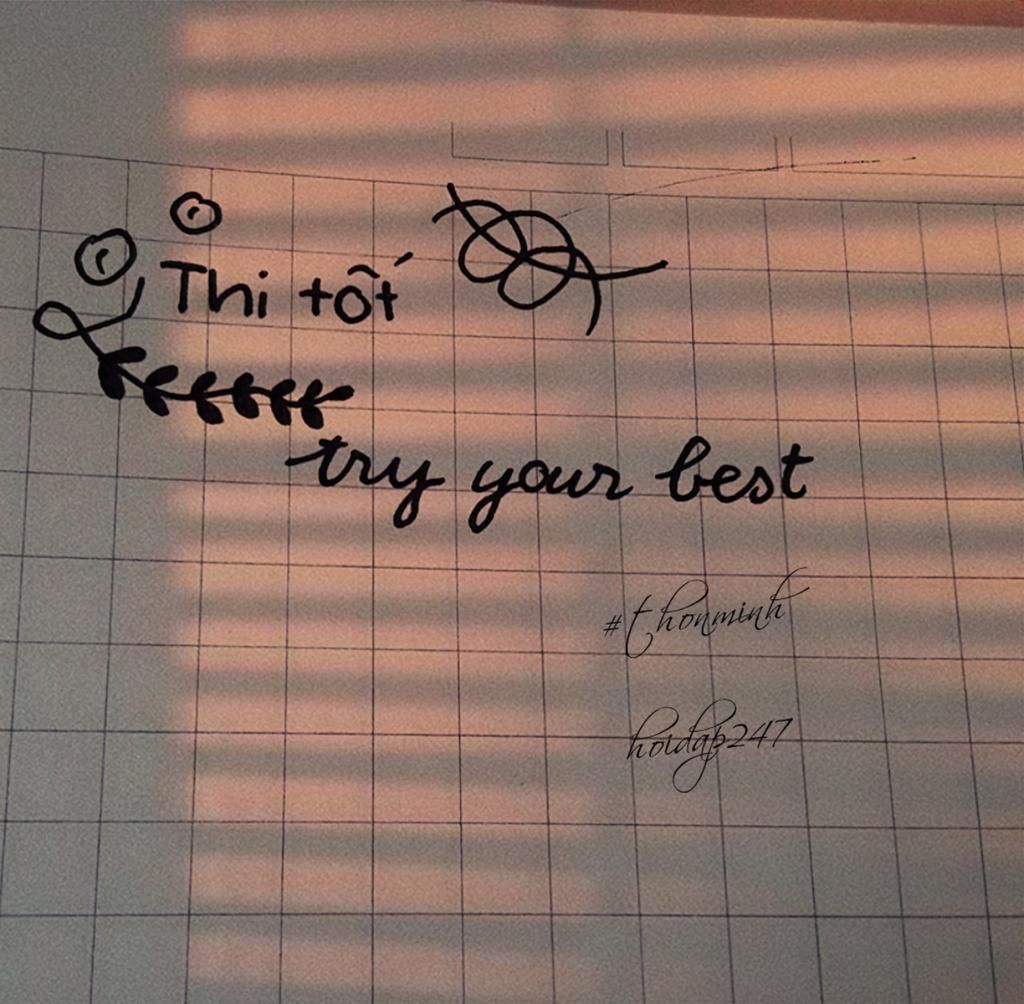 Thi tốt
try your best
#thonminh
hoidap247